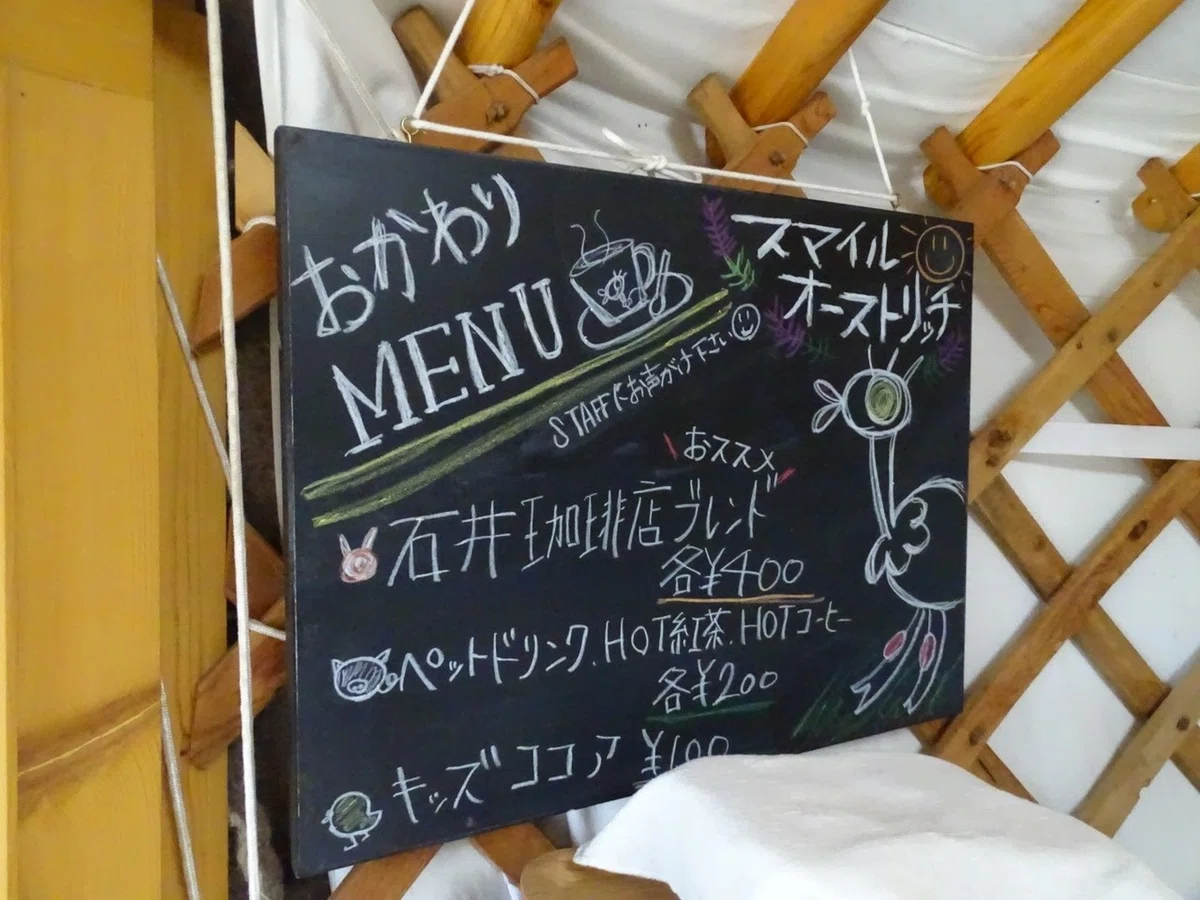 おかわり
MENU
スマイル
オーストリッチ
STAFFにお声がけ下さい
おススメ
石井珈琲店ブレンド
各¥400
ペットドリンク.HOT紅茶.HOTコーヒー
各¥200
キッズココア ¥100